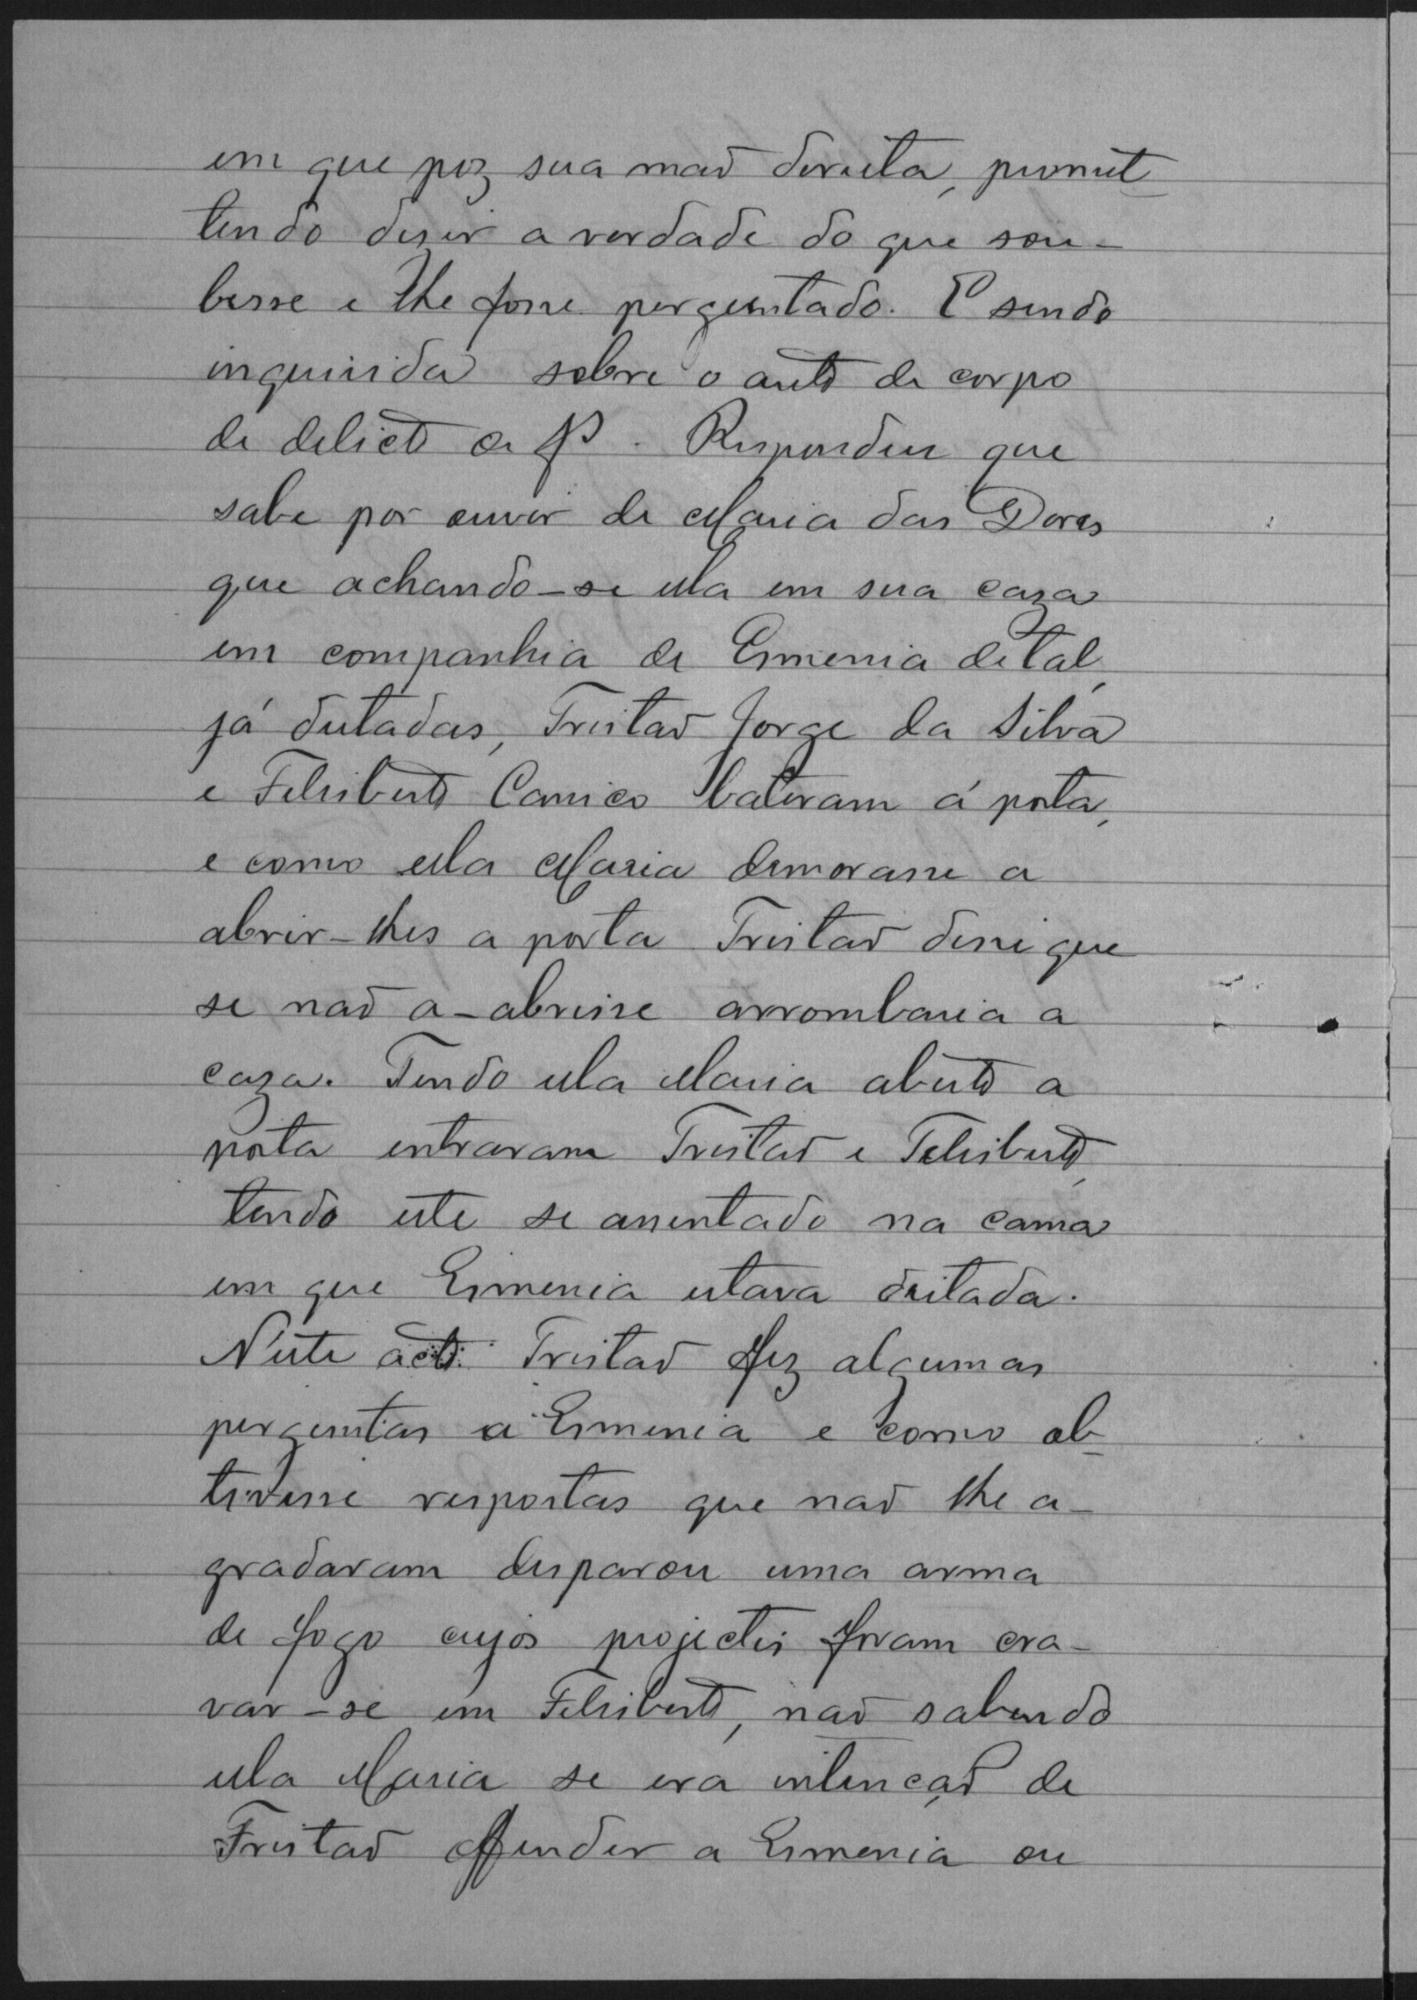 em que poz sua mão direita, promet
tendo dizer a verdade do que sou-
besse e lhe fosse perguntado. E sendo
inquirida sobre o auto de corpo
de delicto de f. Respondeu que
sabe por ouvir de Maria das Dores
que achando-se ella em sua caza
em companhia de Ermenia de tal,
já deitadas, Tristão Jorge da Silva
e Felisberto Canico bateram á porta,
e como ella Maria demorasse a
abrir-lhes a porta Tristão disse que
se não a-abrisse arrombaria a
caza. Tendo ella Maria aberto a
porta entraram Tristão e Felisberto,
tendo este se assentado na cama
em que Ermenia estava deitada.
N'este acto Tristão fez algumas
perguntas a Ermenia e como ob-
tivesse respostas que não lhe a-
gradaram disparou uma arma
de fogo cujos projectis foram cra-
var-se em Felisberto, não sabendo
ella Maria se era intenção de
Tristão offender a Ermenia ou